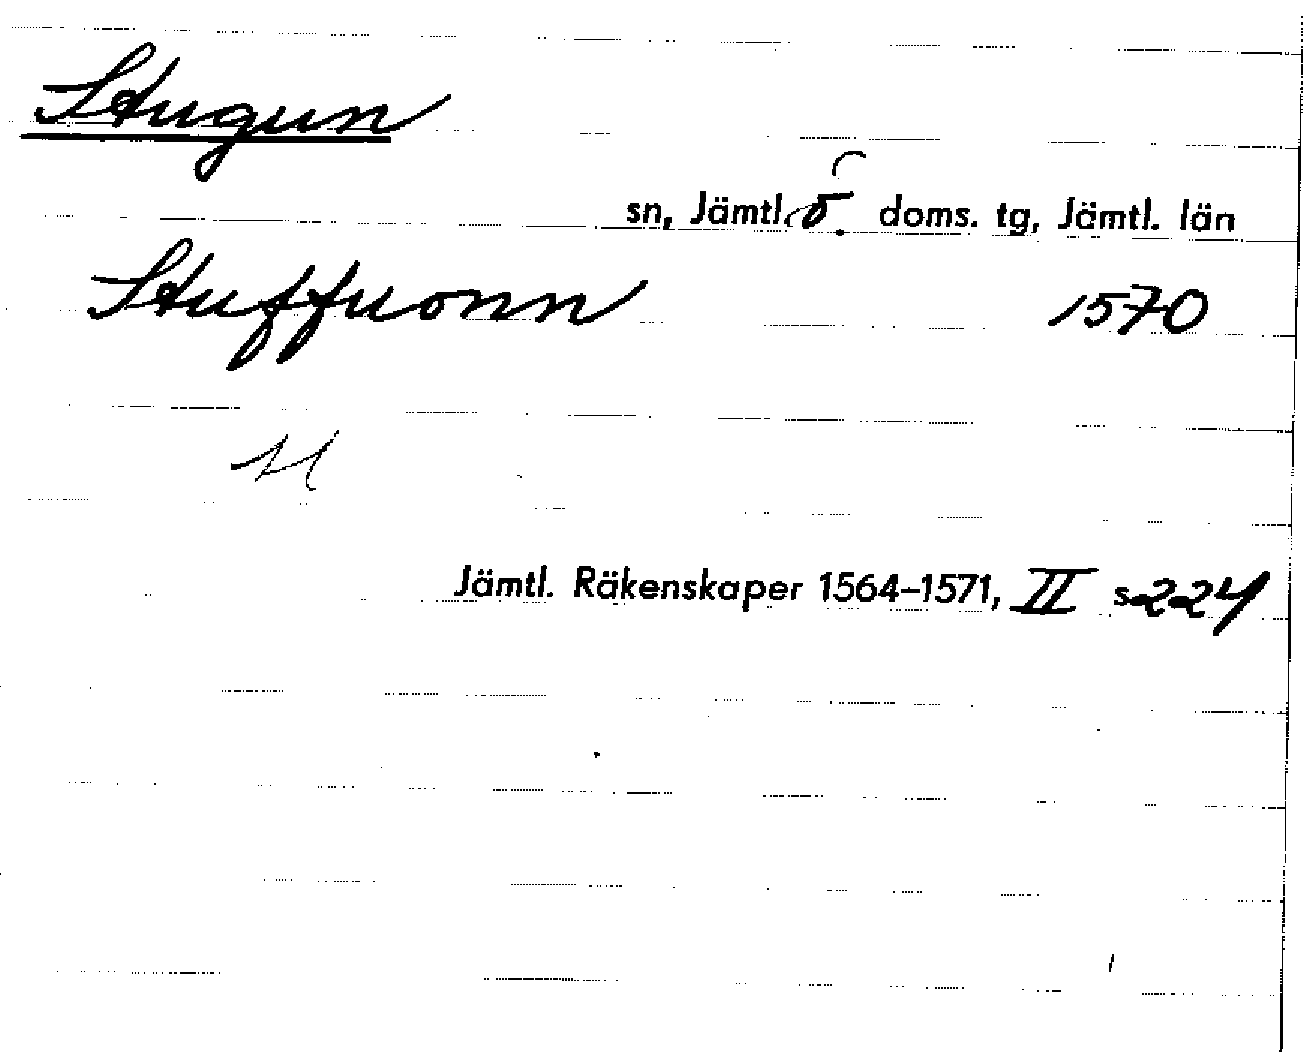 Stugun
sn, Jämtl. ö. doms. tg, Jämtl. län
Stuffuonn 1570
Jämtl. Räkenskaper 1564–1571, II s 224